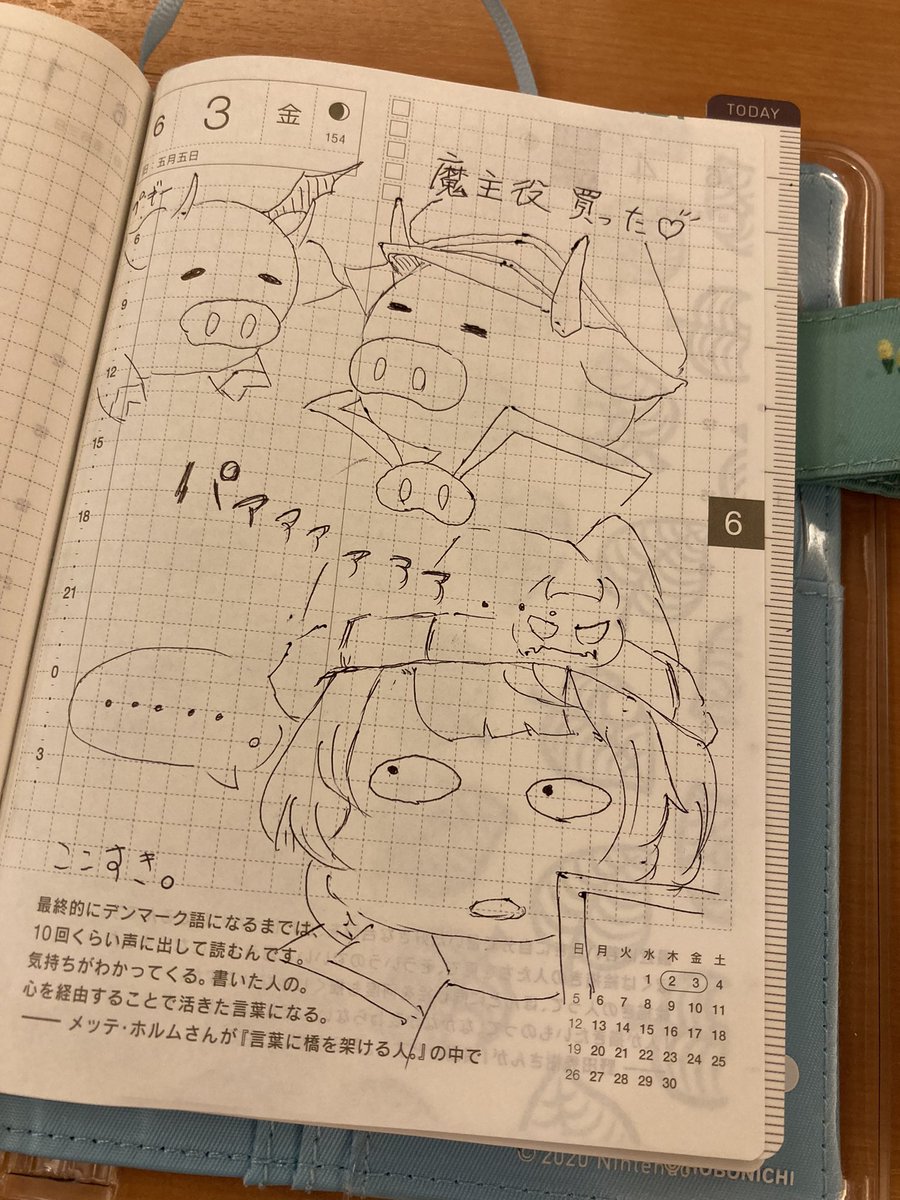 TODAY
6 3 金
154
旧:五月五日
魔主役 買った♡
6
9
12
15
18
21
0
3
パァァァァァァ
・・・・・。
ここすき。
6
最終的にデンマーク語になるまでは、
10回くらい声に出して読むんです。
気持ちがわかってくる。書いた人の。
心を経由することで活きた言葉になる。
—— メッテ・ホルムさんが『言葉に橋を架ける人。』の中で
日 月 火 水 木 金 土
1 2 3 4
5 6 7 8 9 10 11
12 13 14 15 16 17 18
19 20 21 22 23 24 25
26 27 28 29 30
© 2020 Nintendo
HOBONICHI